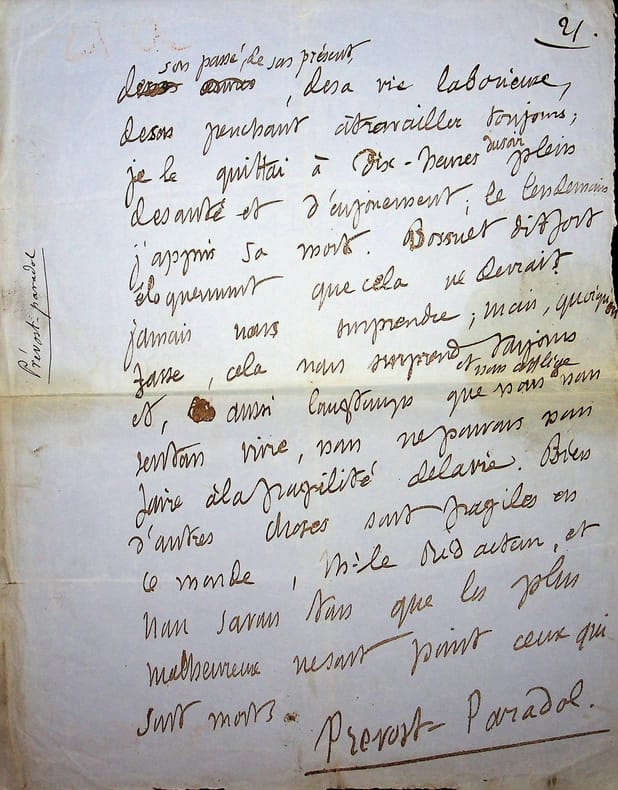 21.
son passé, de son présent,
de , de sa vie laborieuse,
de son penchant à travailler toujours ;
du soir
je le quittai à Dix-heures plein
de santé et d'enjouement ; le lendemain
j'appris sa mort. Bossuet dit fort
éloquemment que cela ne devrait
jamais nous surprendre ; mais, quoiqu'on
fasse, cela nous surprend toujours
et nous afflige
et, aussi longtemps que nous nous
sentons vivre, nous ne pouvons nous
faire à la fragilité de la vie. Bien
d'autres choses sont fragiles en
ce monde, Mr le Rédacteur, et
nous savons tous que les plus
malheureux ne sont point ceux qui
sont morts.
Prevost-Paradol.
Prévost-paradol